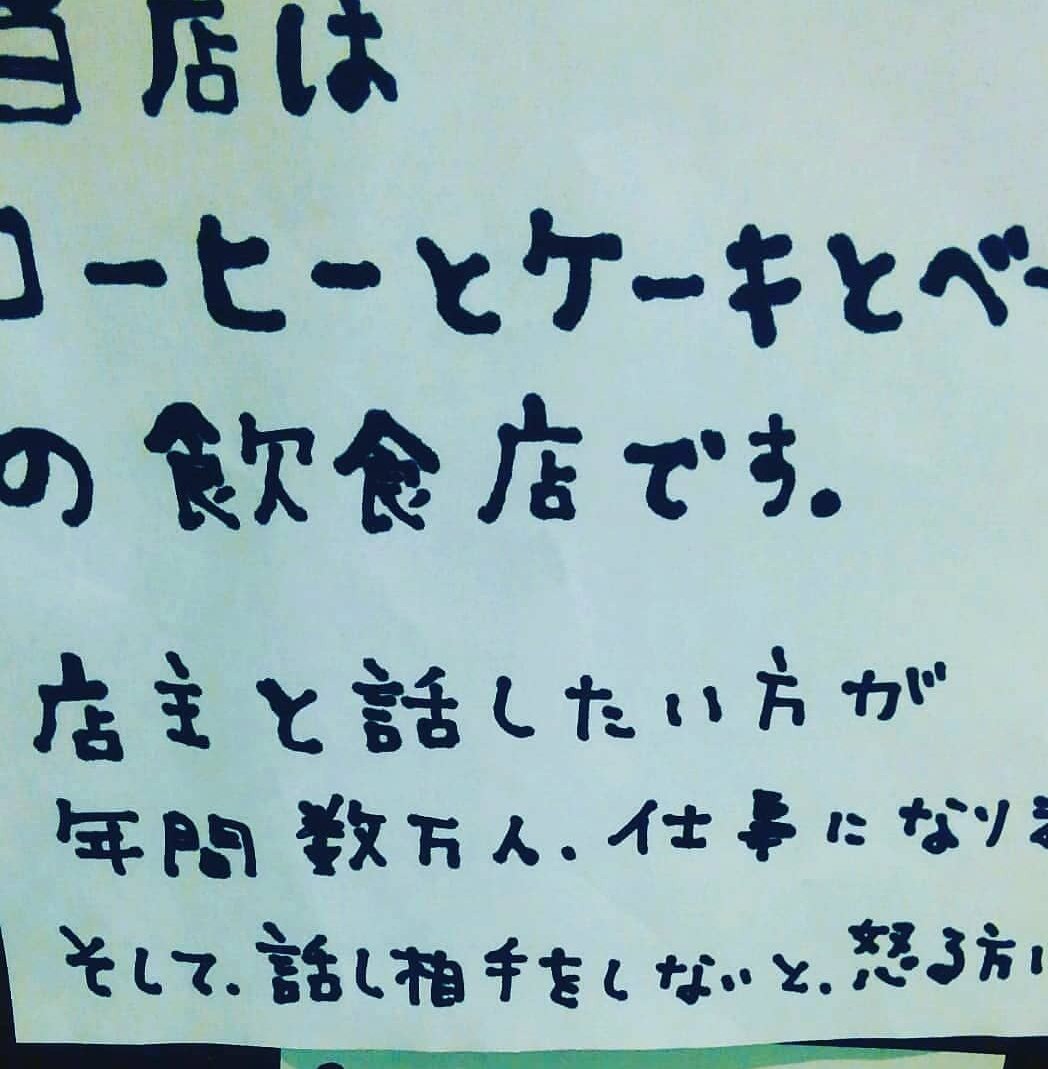 当店は
コーヒーとケーキとベー
の飲食店です。
店主と話したい方が
年間数万人、仕事になりま
そして、話し相手をしないと、怒る方